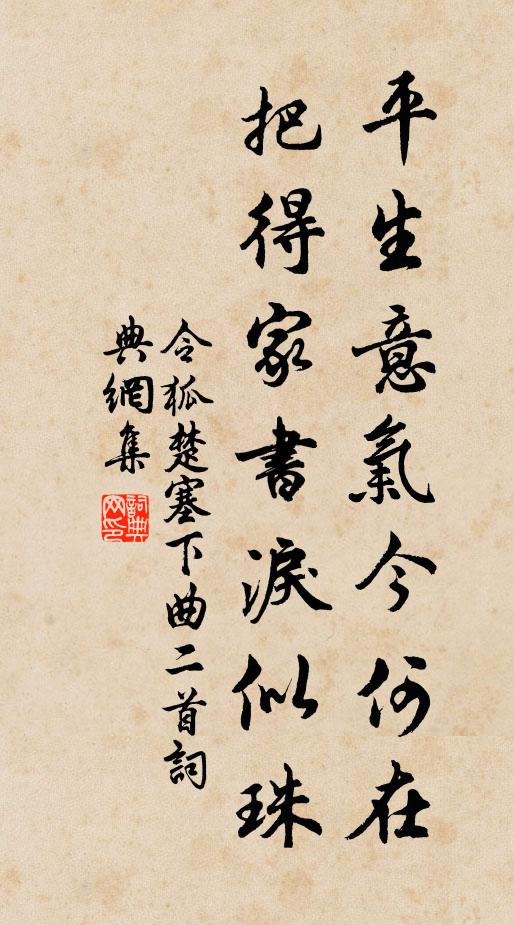 平生意氣今何在
把得家書淚似珠
令狐楚塞下曲二首詞
典網集
詞典网印